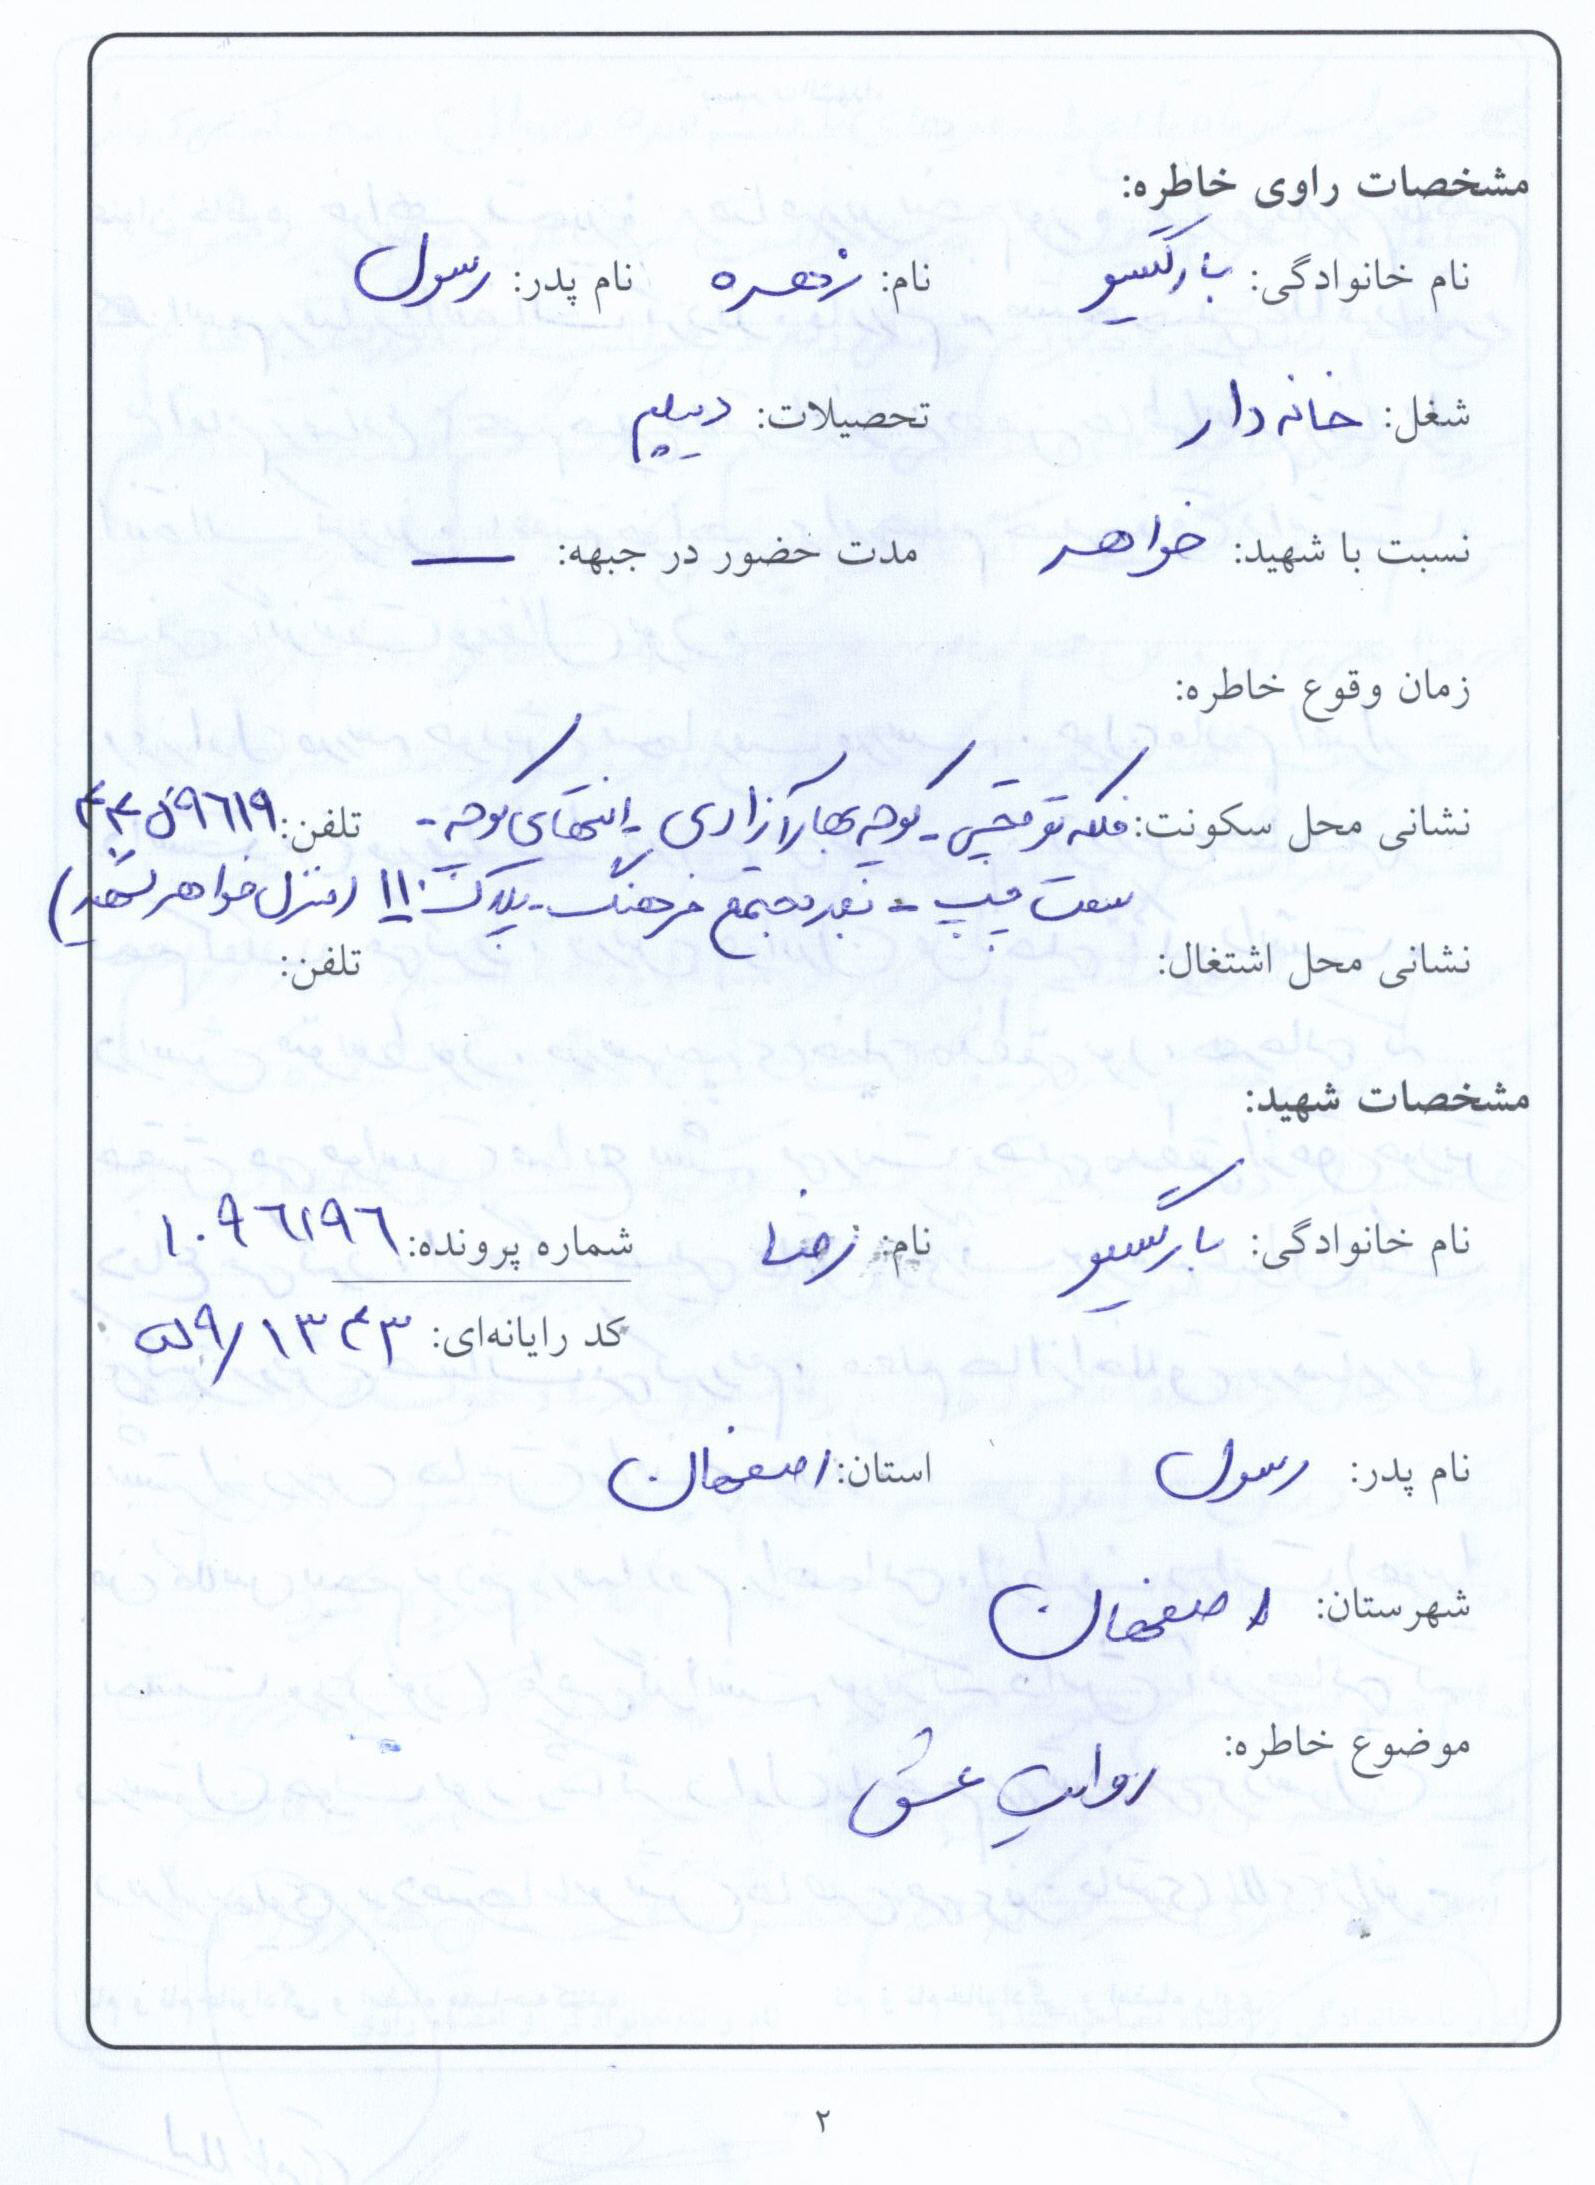 مشخصات راوی خاطره:
نام خانوادگی: بارگیسو نام: زهره نام پدر: رسول
شغل: خانه دار تحصیلات: دیپلم
نسبت با شهید: خواهر مدت حضور در جبهه: —
زمان وقوع خاطره:
نشانی محل سکونت: فلکه توقچی - کوچه بهار آزادی - انتهای کوچه - تلفن:
سمت چپ - مجتمع فرهنگ - پلاک ۱۱ (منزل خواهر شهید)
نشانی محل اشتغال: تلفن:
مشخصات شهید:
نام خانوادگی: بارگیسو نام: رضا شماره پرونده: ۱۰۹۶۱۹۶
کد رایانه‌ای: ۵۹/۱۳۴۳
نام پدر: رسول استان: اصفهان
شهرستان: اصفهان
موضوع خاطره: روایت عشق
۲